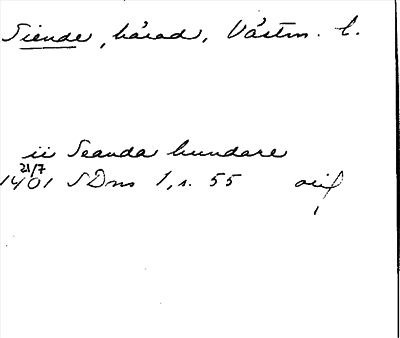 Siende, härad, Västm. l.
ii Seanda hundare
21/7
1401 SDns 1, s. 55